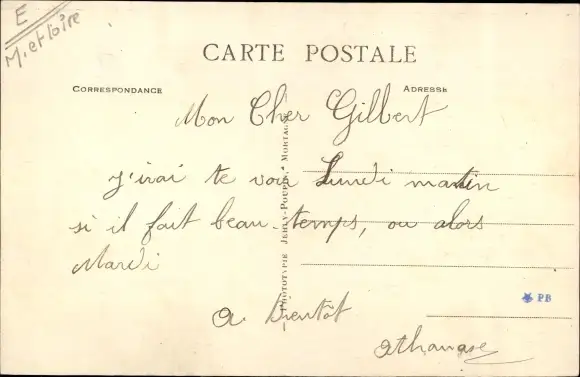 E
M. et loire
CARTE POSTALE
CORRESPONDANCE
ADRESSE
Mon Cher Gilbert
J'irai te voir Lundi matin
si il fait beau temps, ou alors
Mardi
A Bientôt
athanase
PHOTOTYPIE JEHLY-POUPIN, MORTAGNE
PB